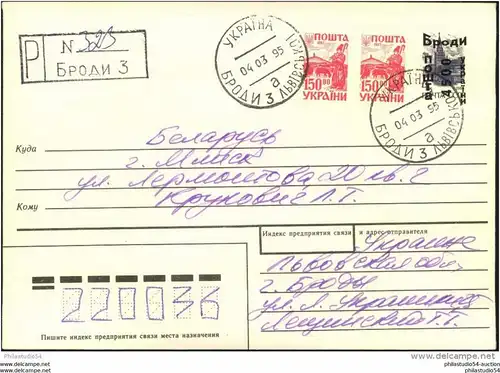 Р N 323
БРОДИ 3
УКРАЇНА
04 03 95
а
БРОДИ 3 ЛЬВІВСЬКОЇ
ПОШТА
150.00
УКРАЇНИ
ПОШТА
150.00
УКРАЇНИ
Броди
пошта
4500
УКРАЇНА
04 03 95
а
БРОДИ 3 ЛЬВІВСЬКОЇ
Куда Беларусь
г. Минск
ул. Лермонтова 20 кв. 2
Кому Крукович Л.Т.
Индекс предприятия связи и адрес отправителя
Украина
Львовская обл.
г. Броды
ул. Л. Украинки
220036
Пишите индекс предприятия связи места назначения
Philastudio54-auction
philastudio54-auction
Philastudio54-auction
philastudio54-auction